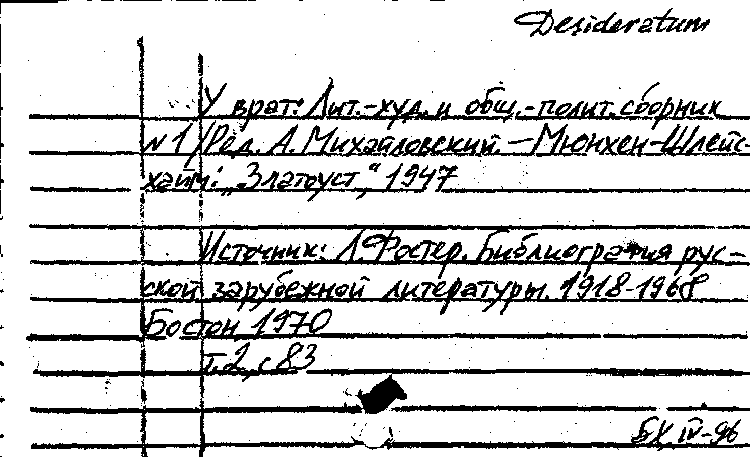 Desideratum
У врат: Лит.-худ. и общ.-полит. сборник
№1/Ред. А. Михайловский. — Мюнхен-Шлейс-
хайм: „Златоуст“, 1947
Источник: Л. Фостер. Библиография рус-
ской зарубежной литературы. 1918-1968
Бостон, 1970
т.2, с 83
БХ IV-96